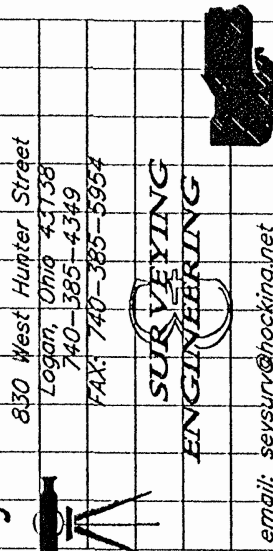 830 West Hunter Street
Logan, Ohio 43138
740-385-4349
FAX: 740-385-5954
SURVEYING
ENGINEERING
email: sevsurv@hocking.net